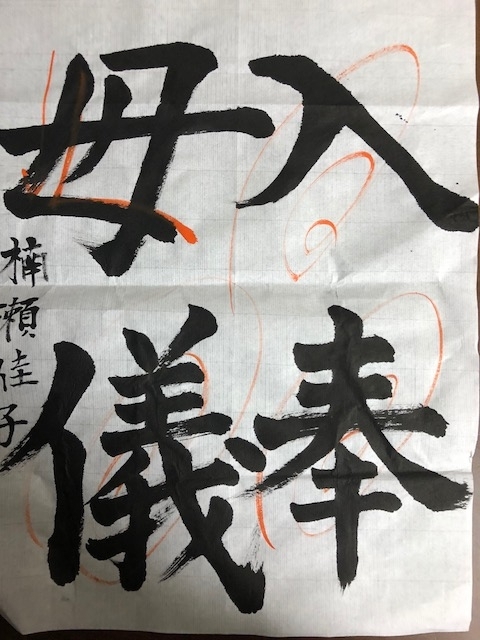 入奉
母儀
楠瀬佳子